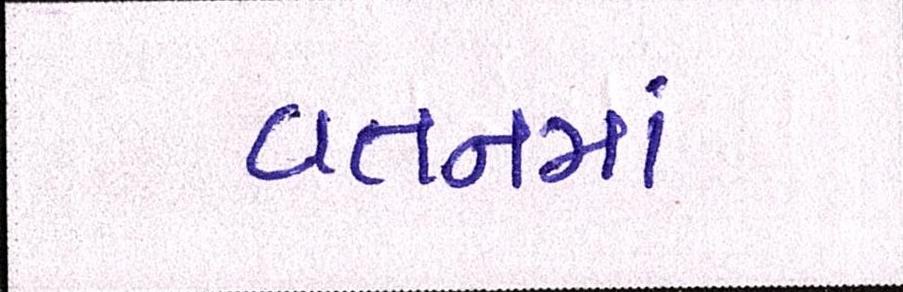 વતનમાં